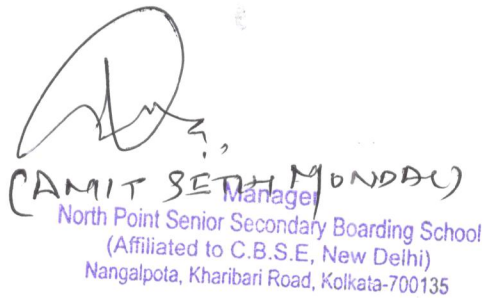 (AMIT SETH MONDAL)
Manager
North Point Senior Secondary Boarding School
(Affiliated to C.B.S.E, New Delhi)
Nangalpota, Kharibari Road, Kolkata-700135